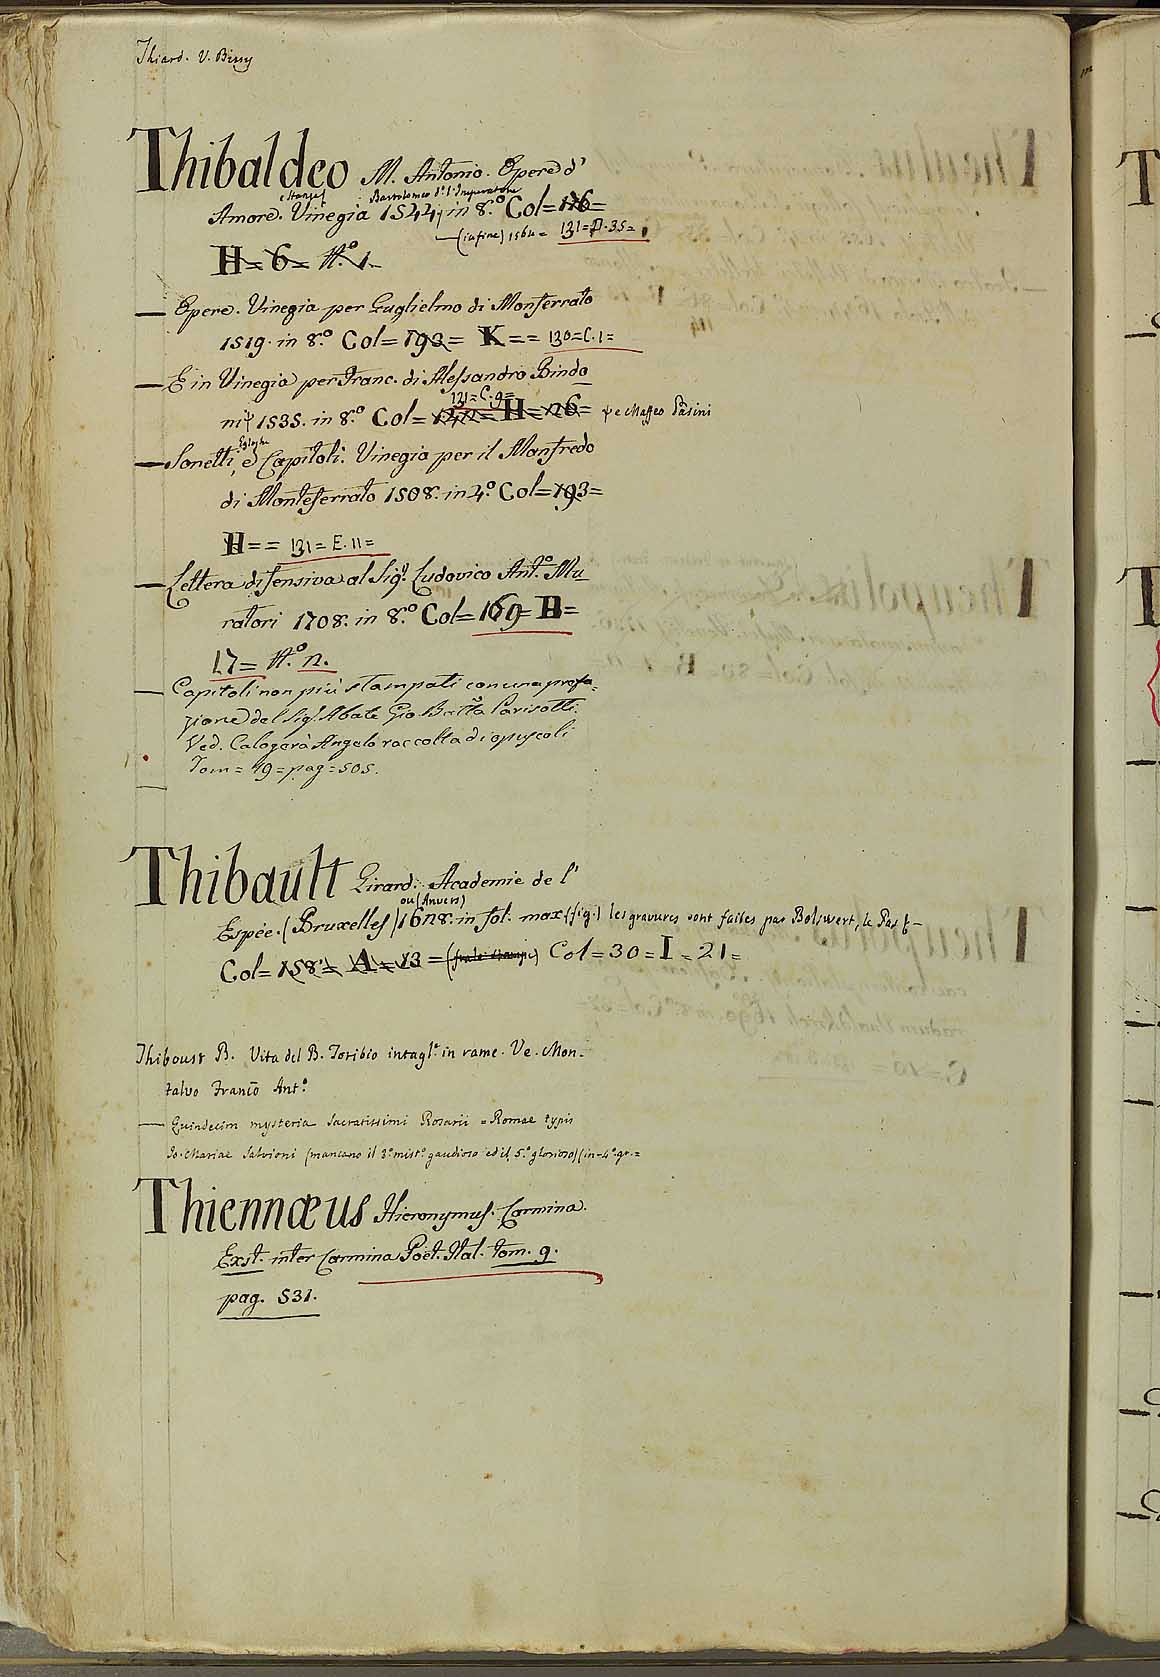 Thiard. V. Bissy
Thibaldeo M. Antonio. Opere d'
e Stanze Bartolomeo d.º l'Imperatore
Amore. Vinegia 1544 in 8.º Col=176=
(in fine) 1564= 131=D.35=
H=6= N.º 1.
— Opere. Vinegia per Guglielmo di Monferrato
1519. in 8.º Col=193= K== 130=C.1=
— E in Vinegia per Franc. di Alessandro Bindo
131=C.9=
ni ψ 1535. in 8.º Col=142=H=26= ψ e Maffeo Pasini
Egloghe
— Sonetti, e Capitoli. Vinegia per il Manfredo
di Monteferrato 1508. in 4.º Col=193=
H== 131=E.11=
— Lettera difensiva al Sig.r Ludovico Ant.º Mu
ratori 1708. in 8.º Col=169=B=
17= N.º 12.
— Capitoli non più stampati con una prefa=
zione del Sig.r Abate Gio Batta Parisotti.
Ved. Calogerà Angelo raccolta di opuscoli
Tom=19=pag=505.
—
Thibault Girard. Academie de l'
ou (Anvers)
Espée. (Bruxelles) 1628. in fol. max (fig.) les gravures sont faites par Bolswert, le Pas &
Col=158=A=13= Col=30=I=21=
Thiboust B. Vita del B. Toribio intagl.ª in rame. Ve. Mon-
talvo Franco Ant.º
— Quindecim mysteria Sacratissimi Rosarii = Romae typis
Jo. Mariae Salvioni (mancano il 3.º mist.º gaudioso ed il 5.º glorioso) (in-4.º gr.=
Thiennæus Hieronymus. Carmina.
Exst. inter Carmina Poët. Ital. tom. 9.
pag. 531.